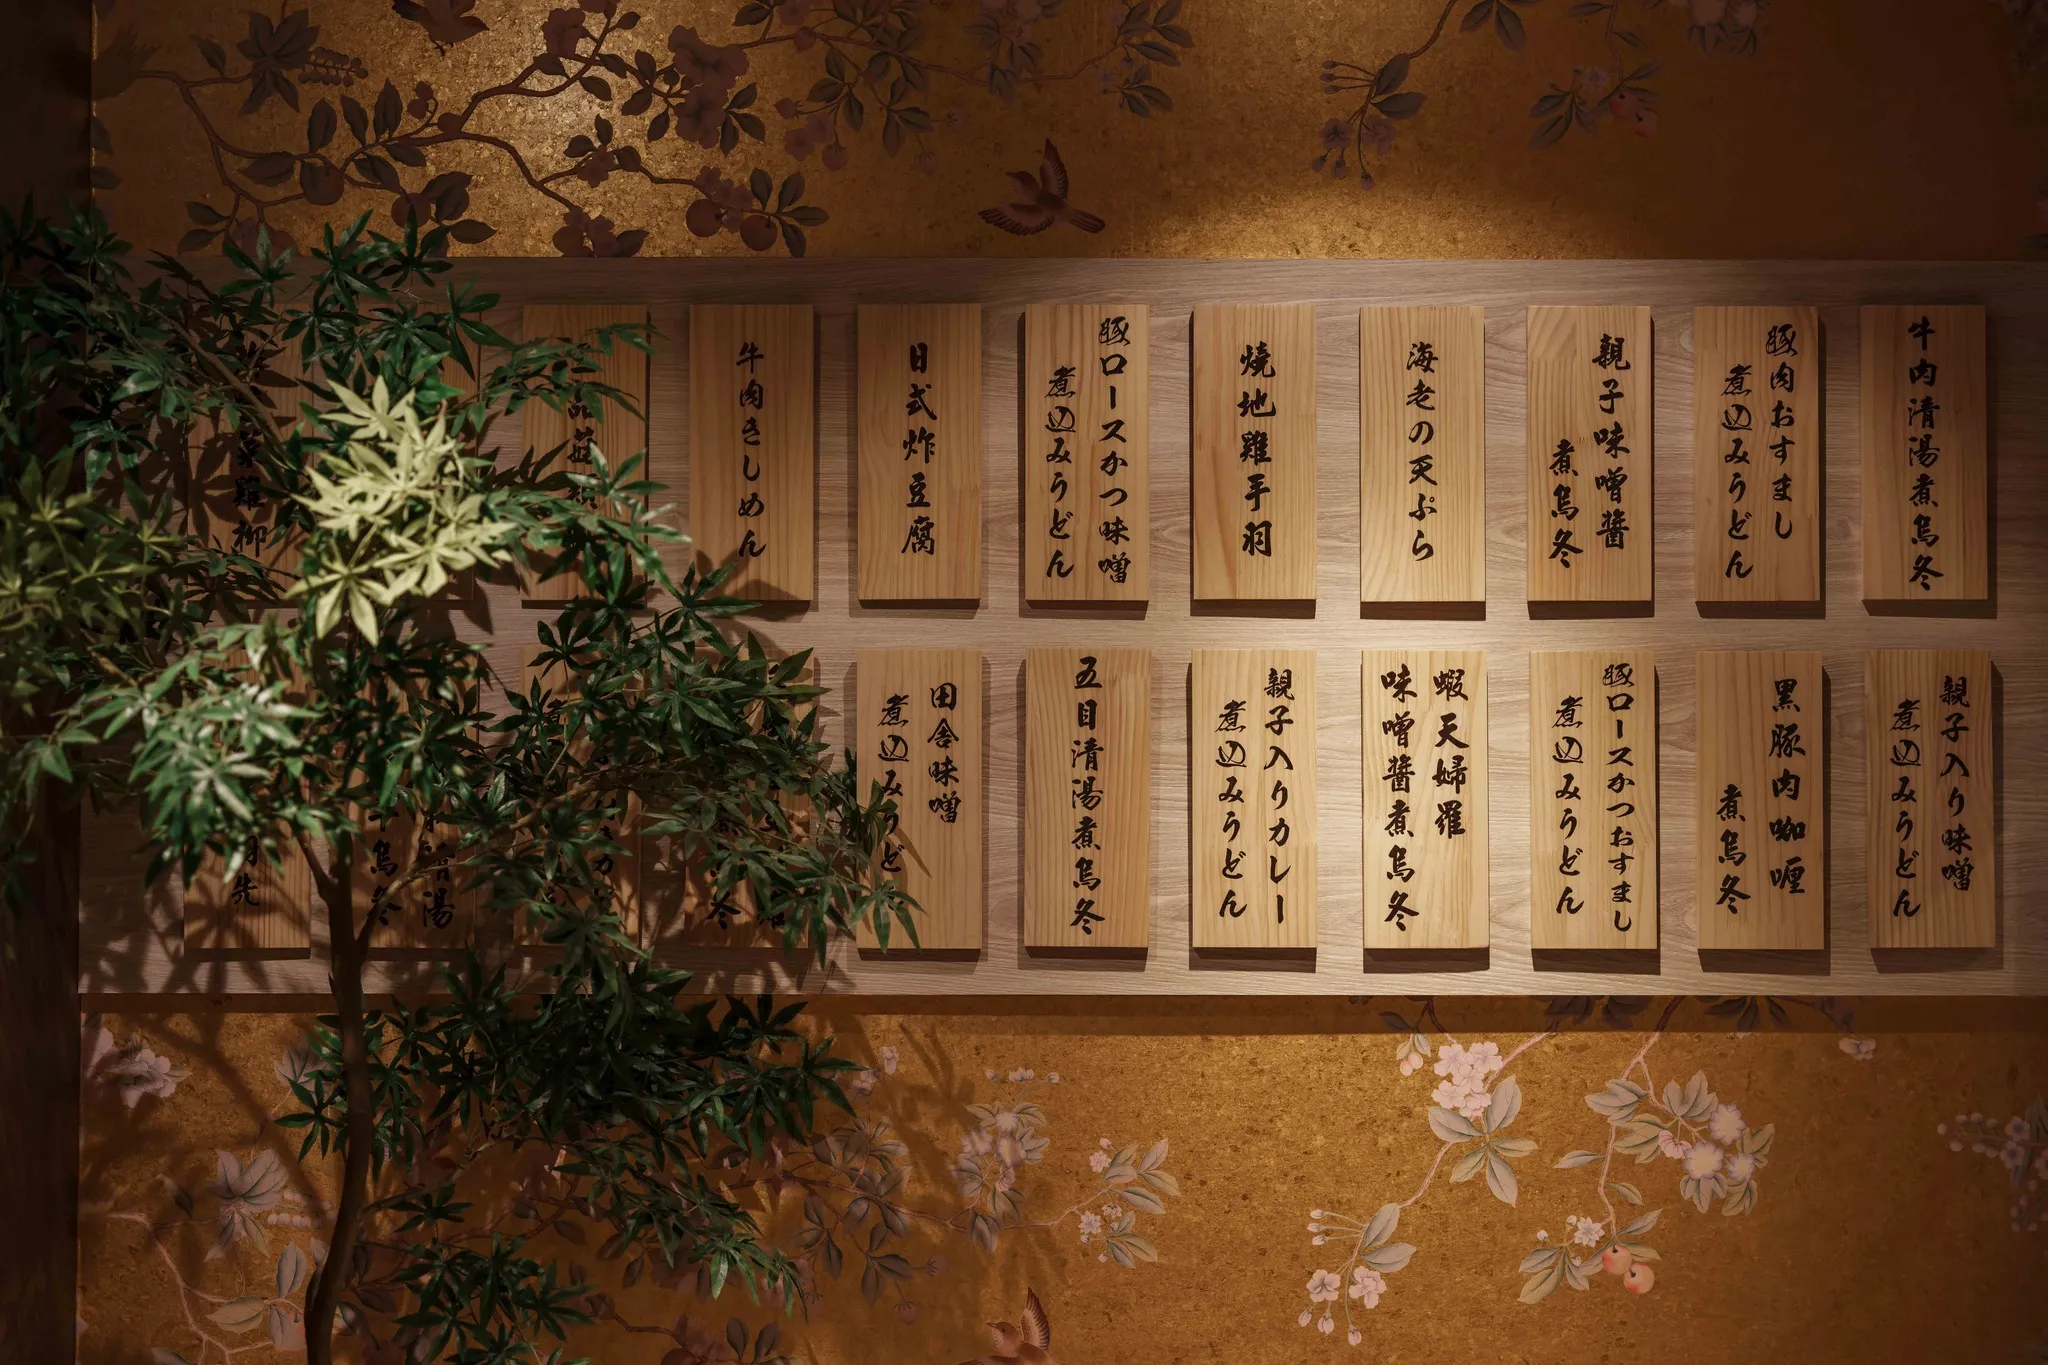 牛肉清湯煮烏冬
豚肉おすまし
煮込みうどん
親子味噌醬
煮烏冬
海老の天ぷら
燒地雞手羽
豚ロースかつ味噌
煮込みうどん
日式炸豆腐
牛肉きしめん
親子入り味噌
煮込みうどん
黑豚肉咖喱
煮烏冬
豚ロースかつおすまし
煮込みうどん
蝦天婦羅
味噌醬煮烏冬
親子入りカレー
煮込みうどん
五目清湯煮烏冬
田舎味噌
煮込みうどん